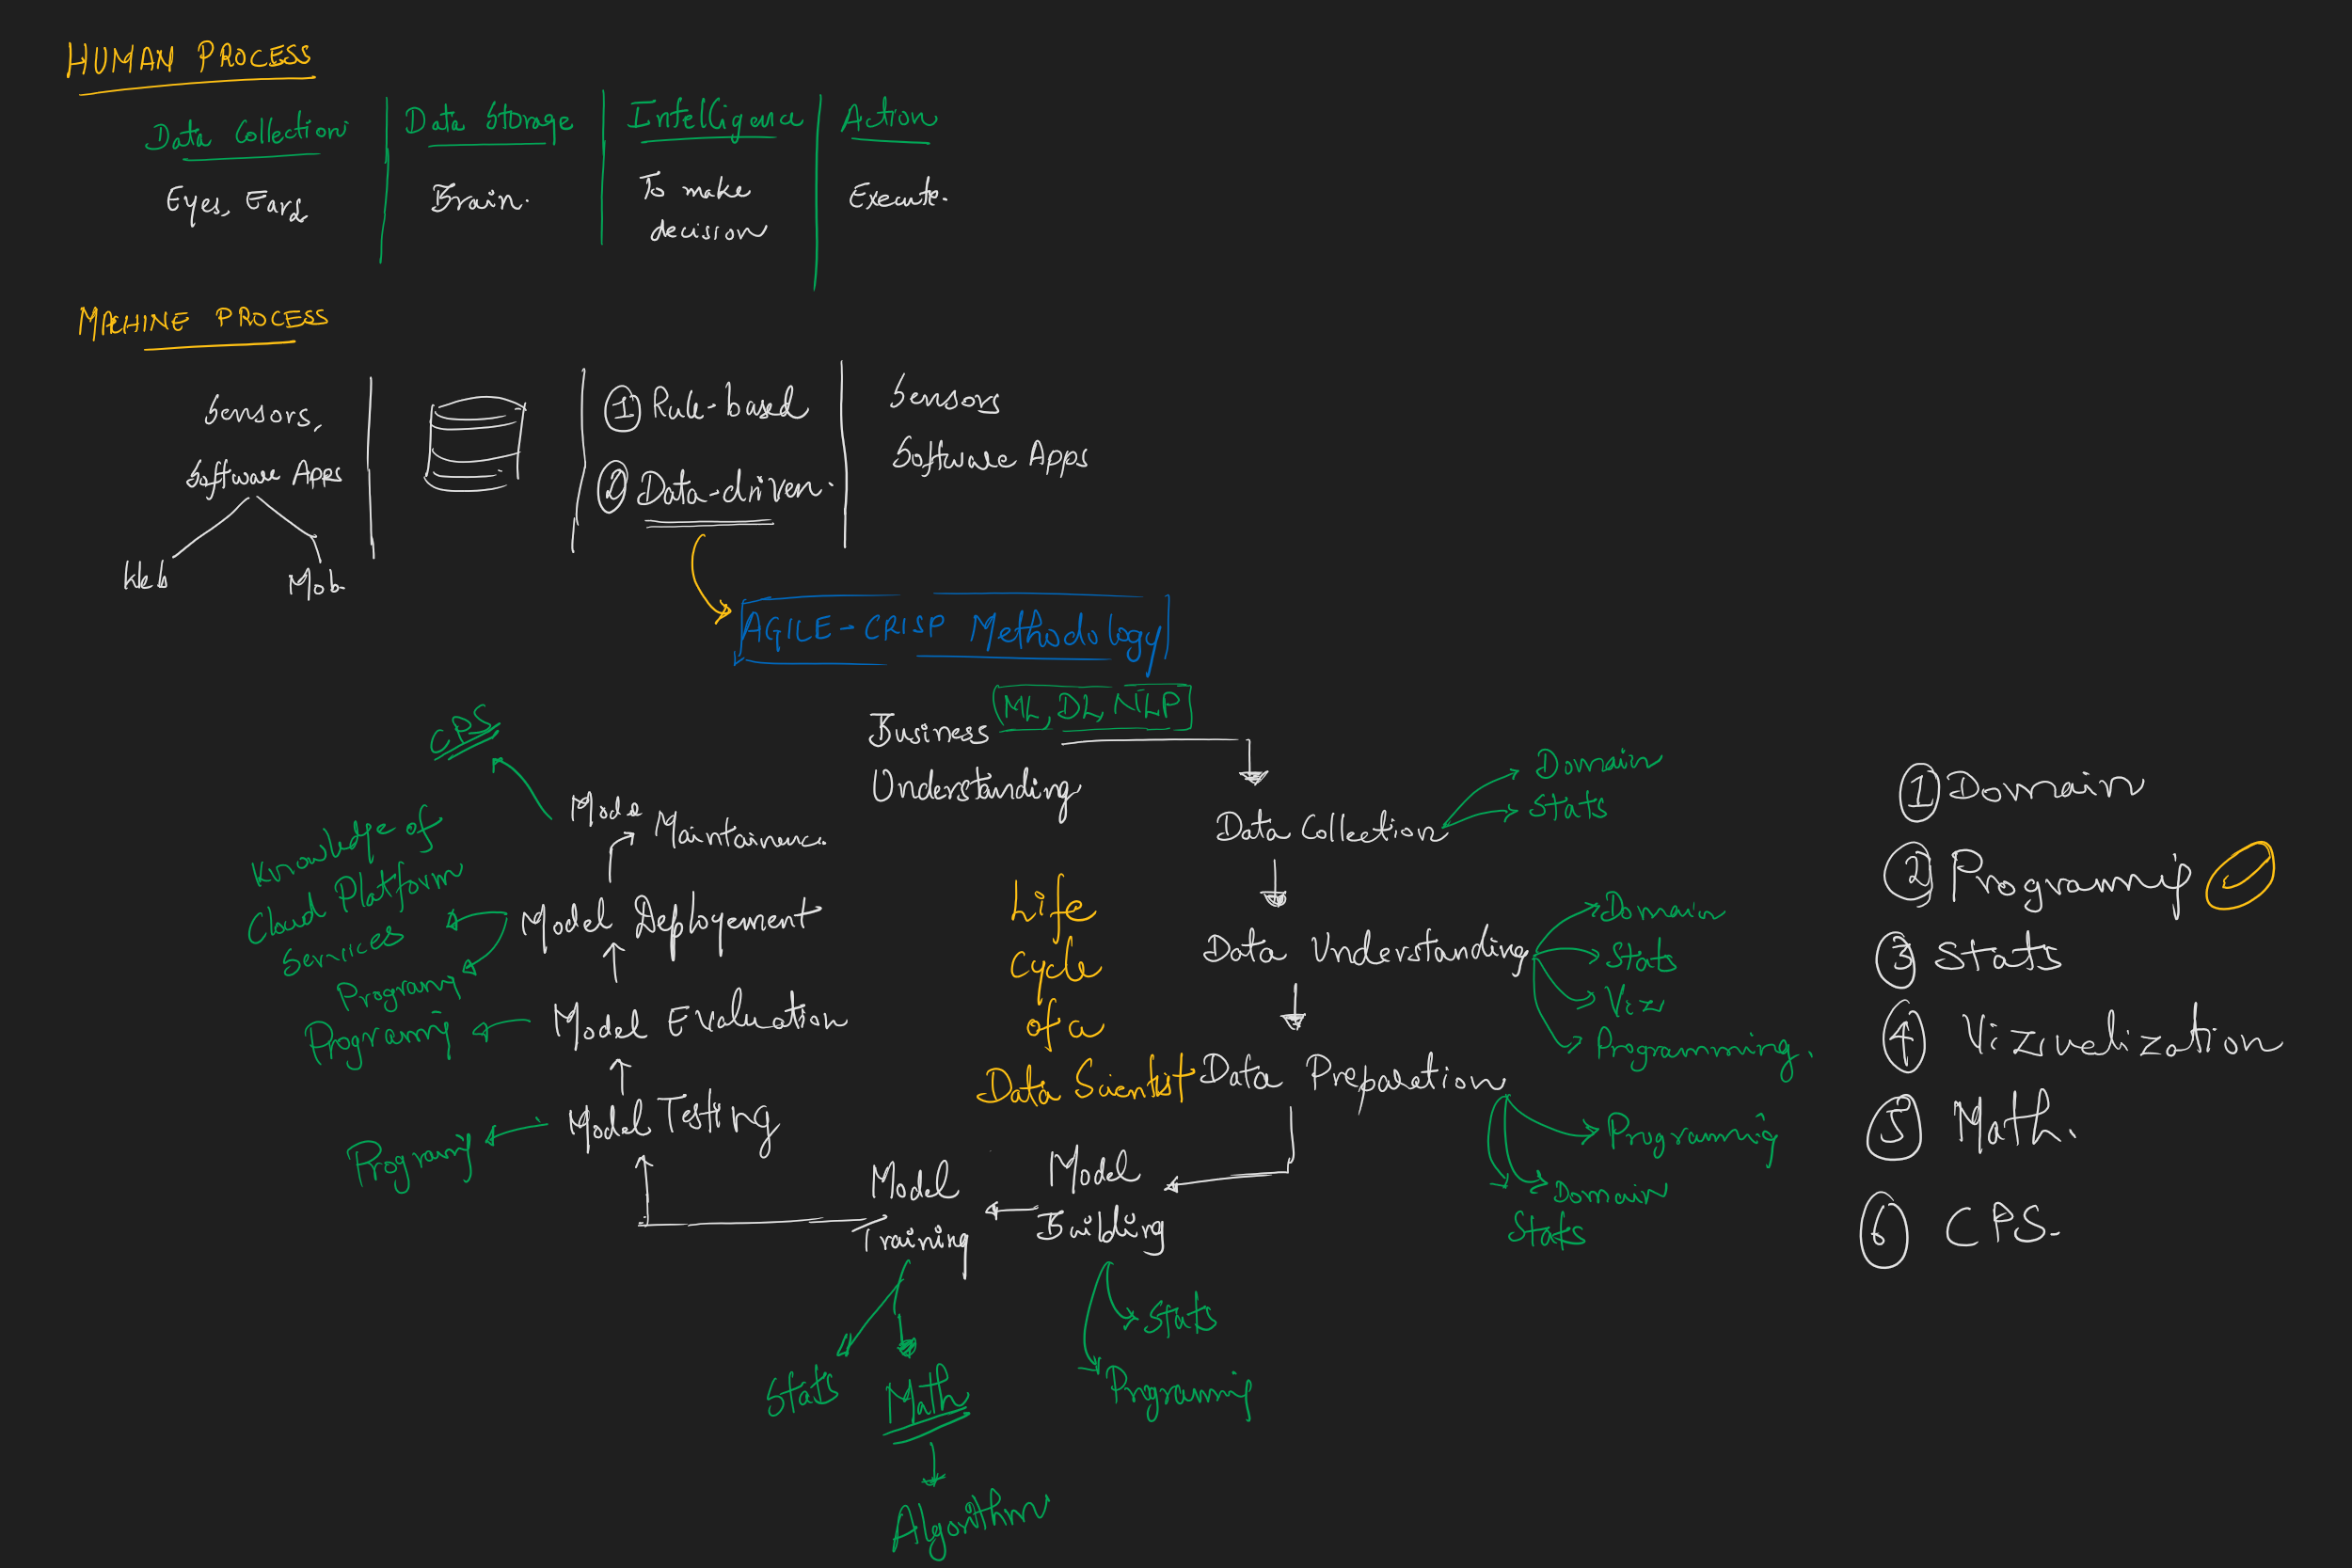 HUMAN PROCESS
Data Collection
Data Storage
Intelligence
Action
Eyes, Ears
Brain.
To make
decision
Execute.
MACHINE PROCESS
Sensors,
Software Apps
Web
Mob.
① Rule-based
② Data-driven.
Sensors
Software Apps
AGILE-CRISP Methodology
ML, DL, NLP
Business
Understanding
Data Collection
Domain
Stats
Data Understanding
Domain
Stats
Viz
Programming.
Data Preparation
Programming
Domain
Stats
Model
Building
Stats
Programing
Model
Training
Stats
Math
Algorithm
Model Testing
Programing
Model Evaluation
Programing
Model Deployement
Knowledge of
Cloud Platform
Services
Program
Model
Maintainence.
CPS
Life
Cycle
of a
Data Scientist
① Domain
② Programming
③ Stats
④ Vizualization
⑤ Math.
⑥ CPS.